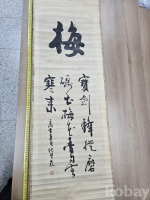 梅
寶劍鋒從磨
礪出梅花香自
寒來
kobay